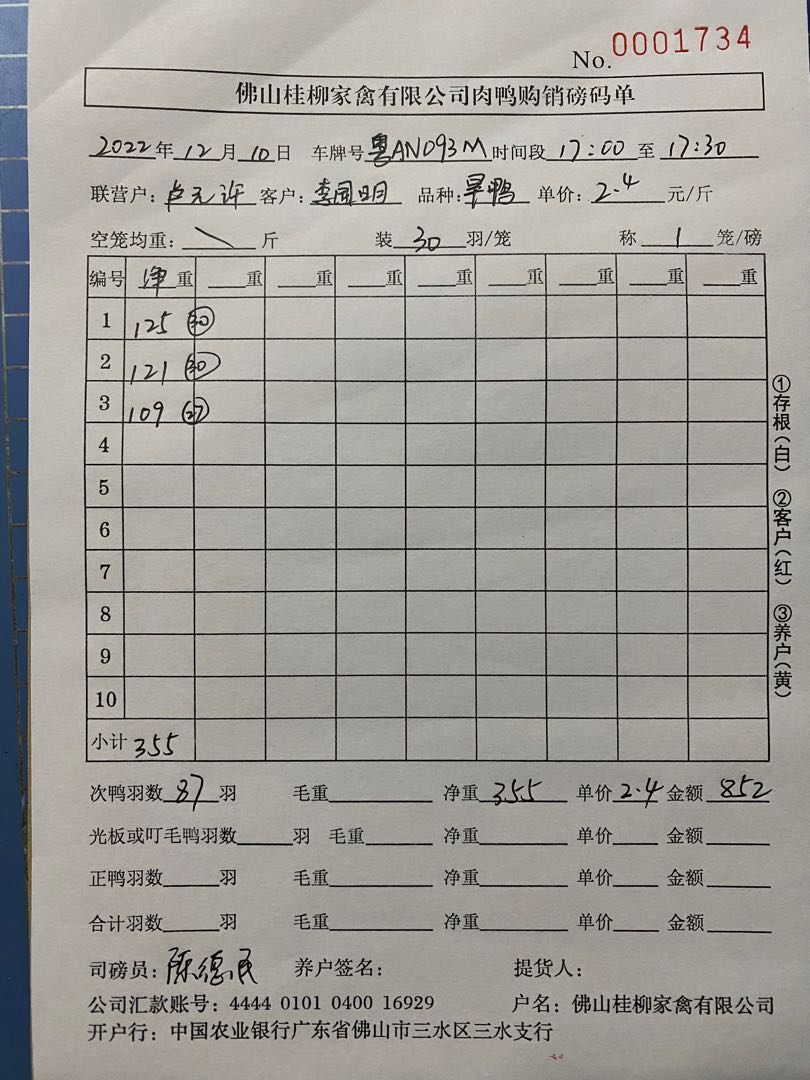 No. 0001734
佛山桂柳家禽有限公司肉鸭购销磅码单
2022年 12月 10日 车牌号 粤AN093M 时间段 17:00 至 17:30
联营户: 卢元许 客户: 李园明 品种: 旱鸭 单价: 2.4 元/斤
空笼均重: \ 斤 装 30 羽/笼 称 1 笼/磅
编号 净重 重 重 重 重 重 重 重 重
1 125 30
2 121 30
3 109 27
4
5
6
7
8
9
10
小计 355
次鸭羽数 87 羽 毛重 净重 355 单价 2.4 金额 852
光板或叮毛鸭羽数 羽 毛重 净重 单价 金额
正鸭羽数 羽 毛重 净重 单价 金额
合计羽数 羽 毛重 净重 单价 金额
司磅员: 陈德民 养户签名: 提货人:
公司汇款账号: 4444 0101 0400 16929 户名: 佛山桂柳家禽有限公司
开户行: 中国农业银行广东省佛山市三水区三水支行
①存根(白) ②客户(红) ③养户(黄)